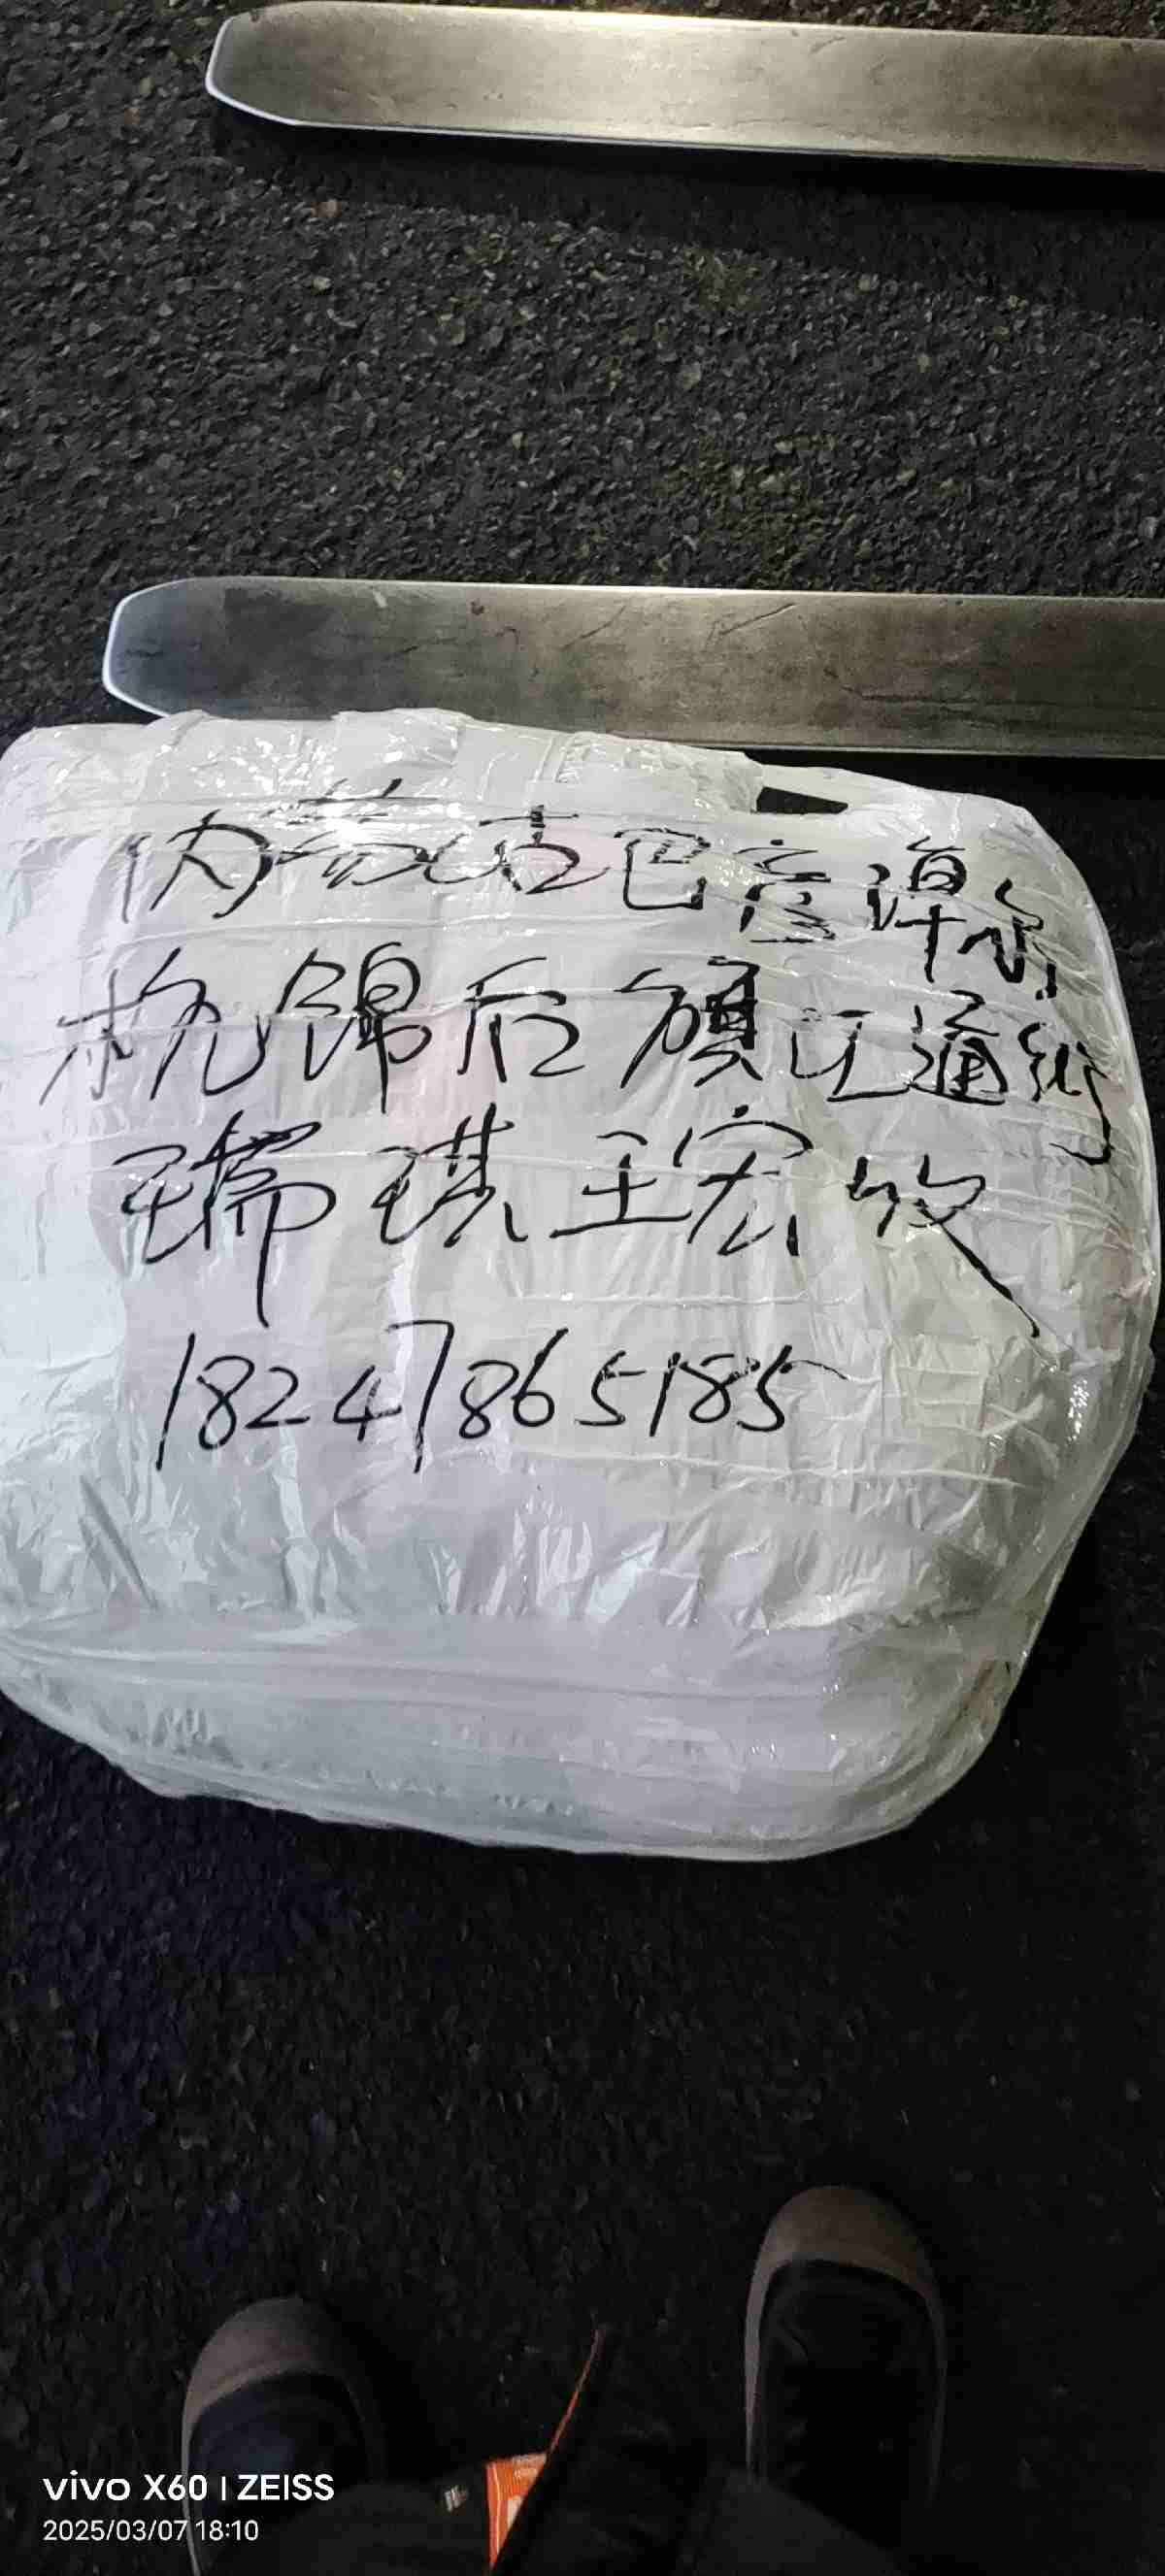 内蒙古巴彦淖尔
杭锦后旗汇通街
瑞琪王宏收
18247865185
vivo X60 | ZEISS
2025/03/07 18:10